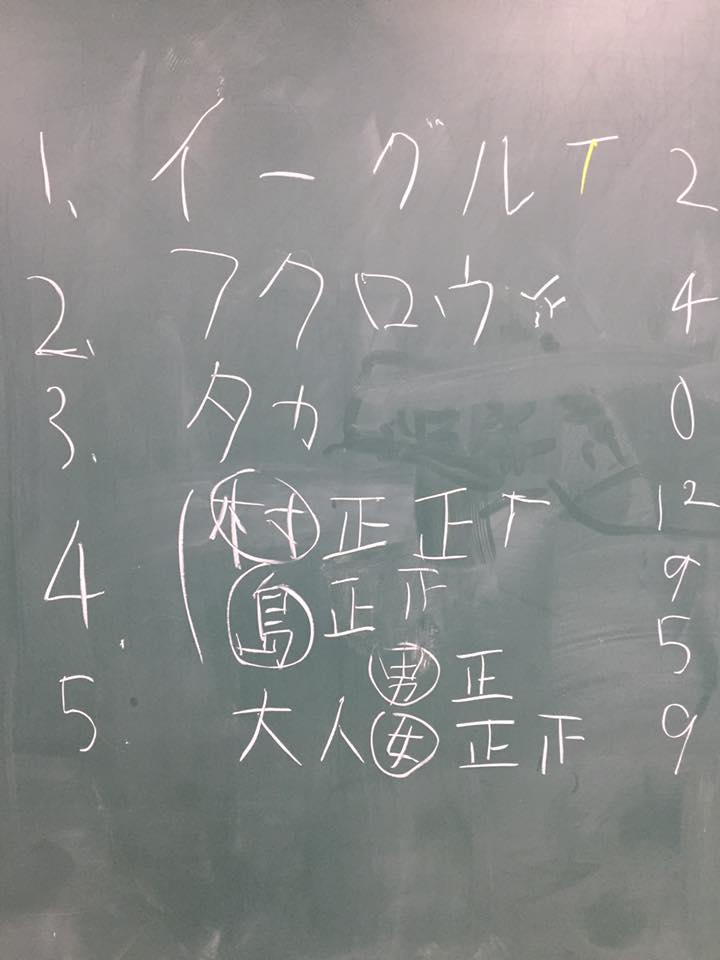 1. イーグル T 2
2. フクロウ 4
3. タカ 0
4. ( 村 正 正 T 12
島 正 正 9
男 正 5
5. 大人 女 正 正 9